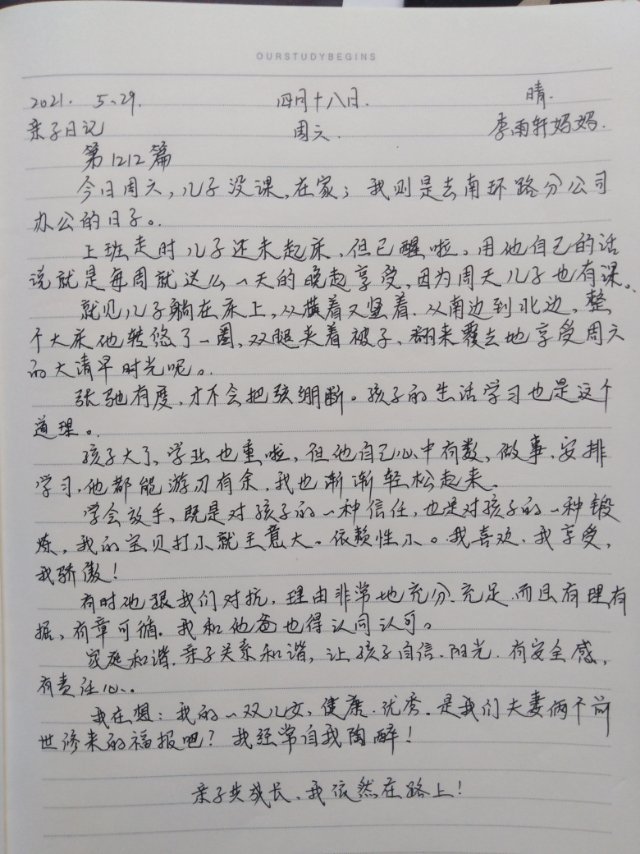 OURSTUDYBEGINS
2021. 5.29. 四月十八日. 晴.
亲子日记 周六. 李雨轩妈妈.
第1212篇
今日周六,儿子没课,在家;我则是去南环路分公司
办公的日子。
上班走时儿子还未起床,但已醒啦,用他自己的话
说就是每周就这么一天的晚起享受,因为周天儿子也有课。
就见儿子躺在床上,从横着又竖着,从南边到北边,整
个大床他转悠了一圈,双腿夹着被子,翻来覆去地享受周六
的大清早时光呢。
张驰有度,才不会把弦绷断。孩子的生活学习也是这个
道理。
孩子大了,学业也重啦,但他自己心中有数,做事、安排
学习,他都能游刃有余,我也渐渐轻松起来。
学会放手,既是对孩子的一种信任,也是对孩子的一种锻
炼,我的宝贝打小就主意大。依赖性小。我喜欢,我享受,
我骄傲!
有时他跟我们对抗,理由非常地充分、充足,而且有理有
据,有章可循。我和他爸也得认同认可。
家庭和谐,亲子关系和谐,让孩子自信、阳光、有安全感,
有责任心。
我在想:我的一双儿女,健康、优秀。是我们夫妻俩个前
世修来的福报吧?我经常自我陶醉!
亲子共成长,我依然在路上!